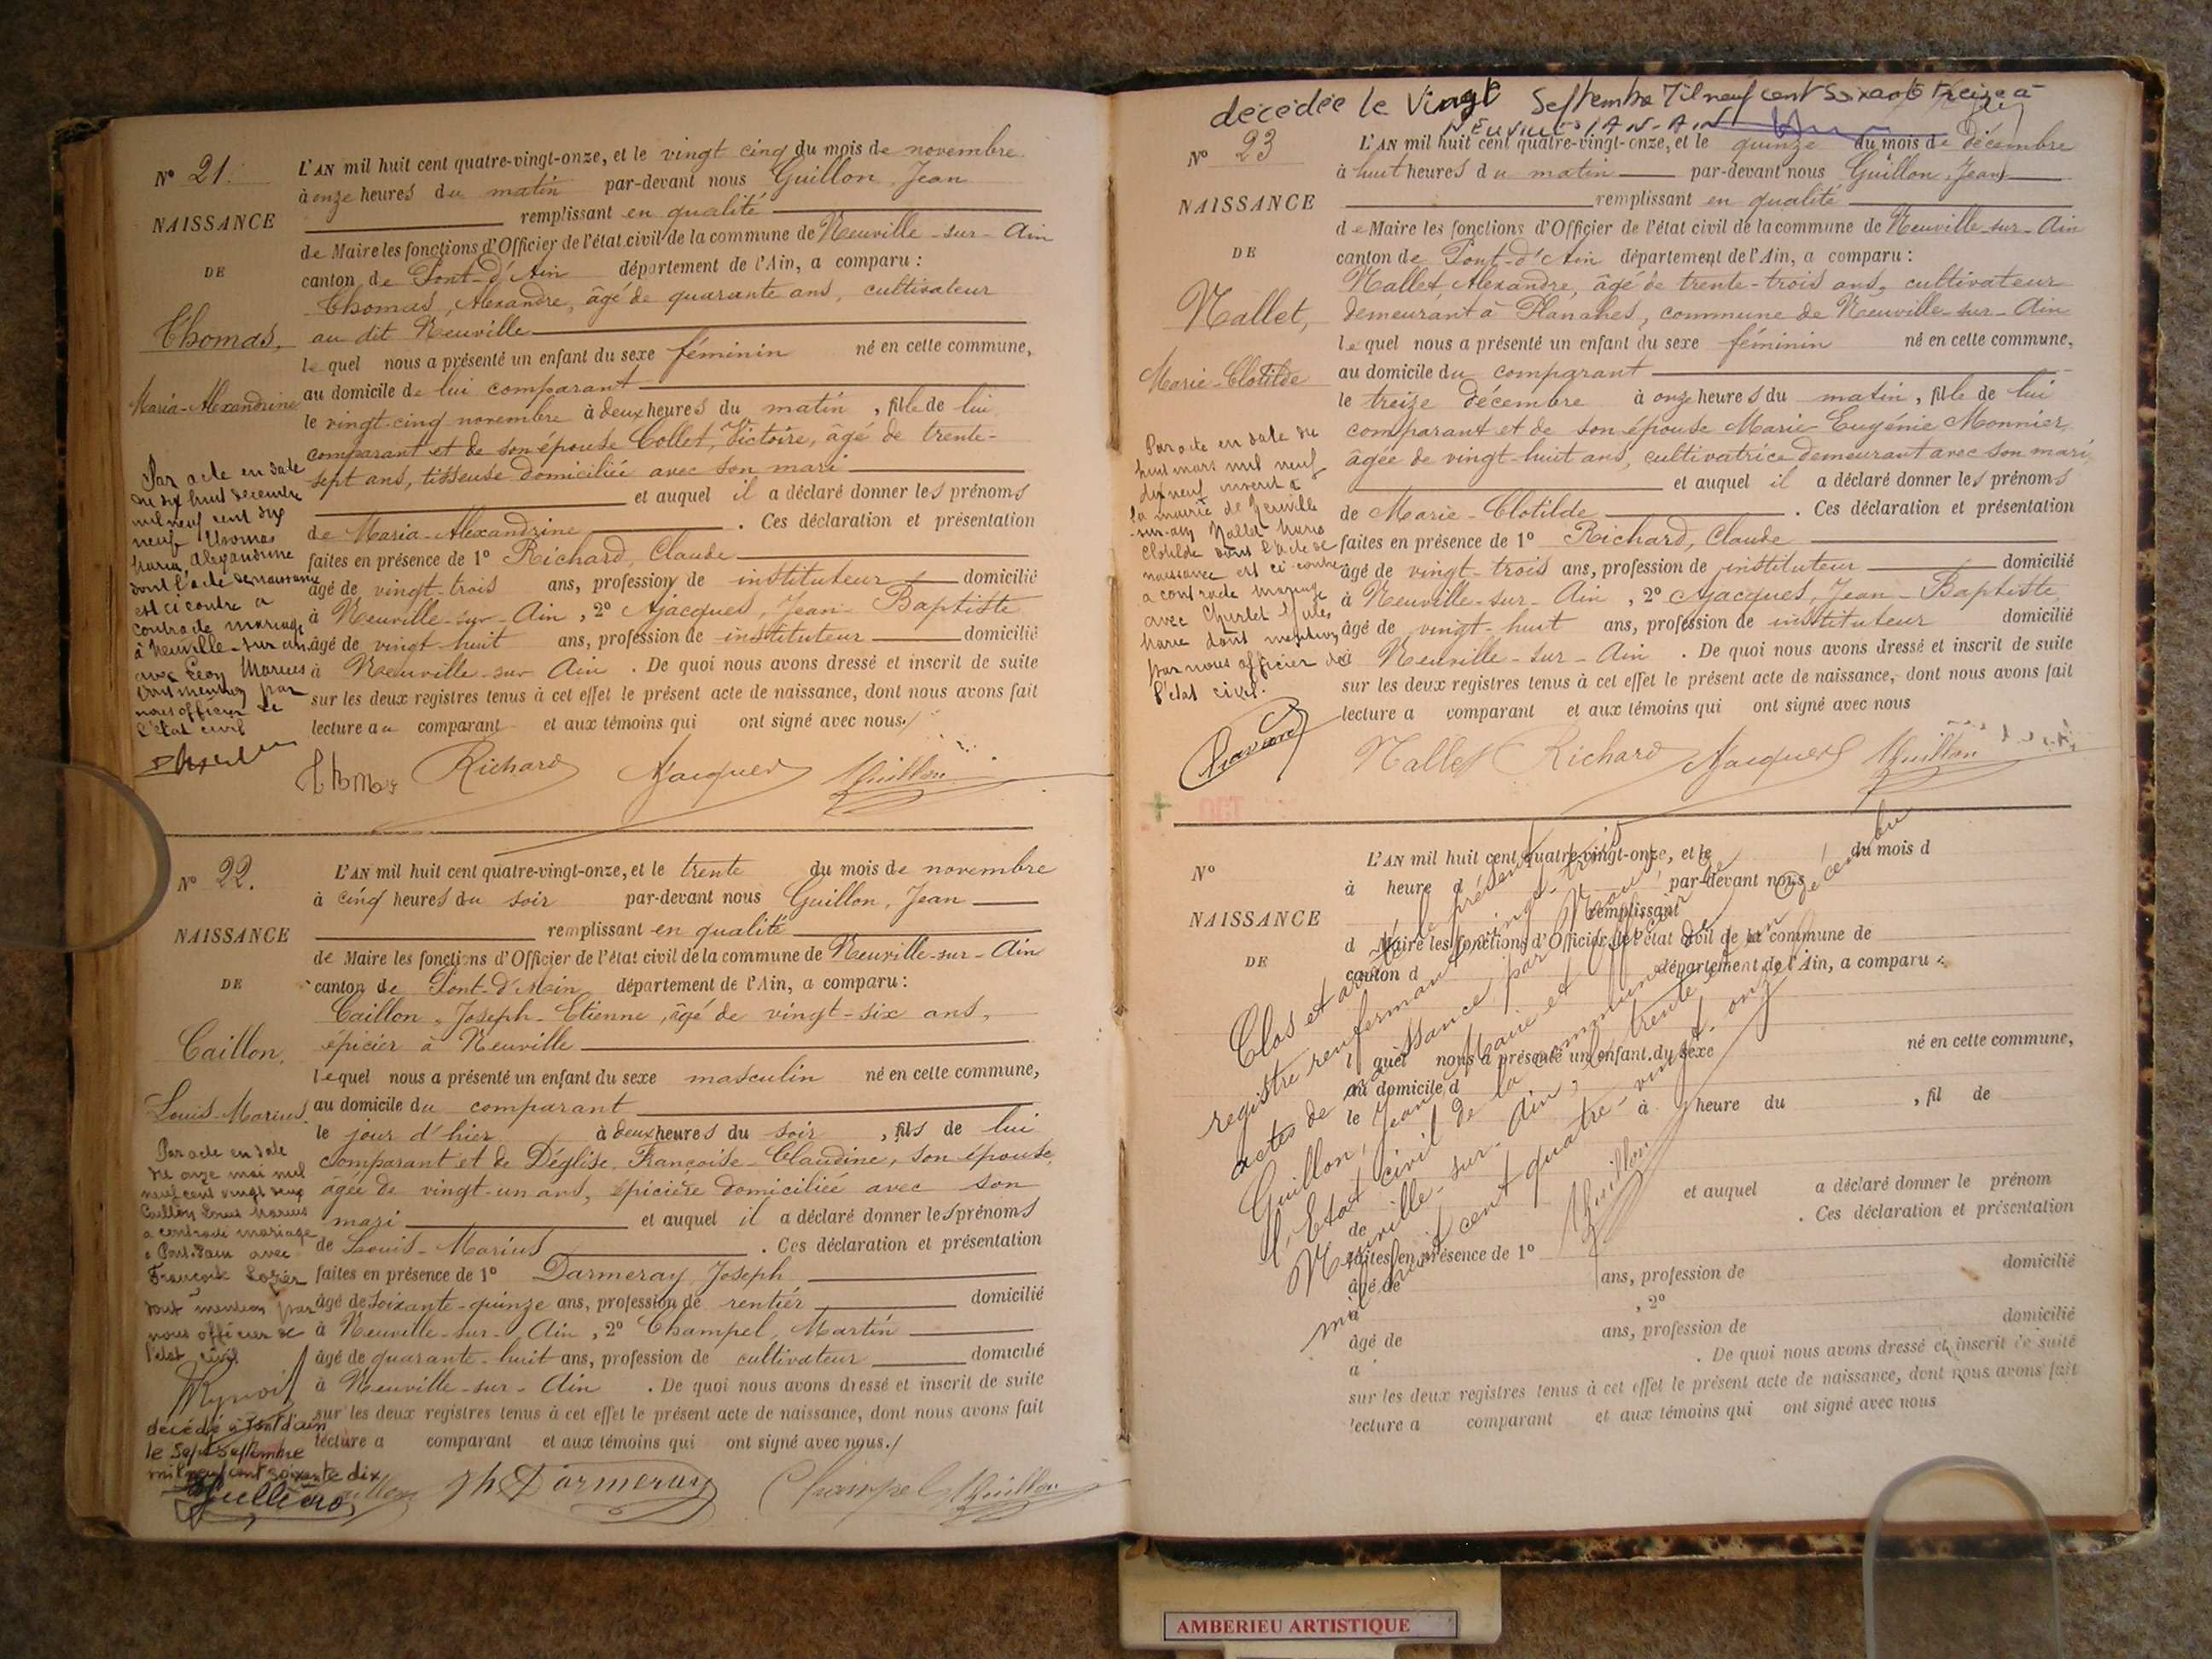 N° 21.
NAISSANCE
DE
Thomas,
Maria-Alexandrine
L'AN mil huit cent quatre-vingt-onze, et le vingt cinq du mois de novembre
à onze heures du matin par-devant nous Guillon, Jean
remplissant en qualité
de Maire les fonctions d'Officier de l'état civil de la commune de Neuville-sur-Ain
canton de Pont-d'Ain département de l'Ain, a comparu :
Thomas, Alexandre, âgé de quarante ans, cultivateur
au dit Neuville
lequel nous a présenté un enfant du sexe féminin né en cette commune,
au domicile de lui comparant
le vingt-cinq novembre à deux heures du matin, fille de lui
comparant et de son épouse Collet, Victoire, âgé de trente-
sept ans, tisseuse domiciliée avec son mari
et auquel il a déclaré donner les prénoms
de Maria-Alexandrine. Ces déclaration et présentation
faites en présence de 1° Richard, Claude
âgé de vingt-trois ans, profession de instituteur domicilié
à Neuville-sur-Ain, 2° Ajacques, Jean-Baptiste
âgé de vingt-huit ans, profession de instituteur domicilié
à Neuville-sur-Ain. De quoi nous avons dressé et inscrit de suite
sur les deux registres tenus à cet effet le présent acte de naissance, dont nous avons fait
lecture au comparant et aux témoins qui ont signé avec nous./
Par acte en date
du dix huit décembre
mil neuf cent dix
neuf Thomas
Maria Alexandrine
dont l'acte de naissance
est ci contre a
contracté mariage
à Neuville-sur-ain
avec Léon Marius
dont mention par
nous officier de
l'état civil
Thomas Richard Ajacques JGuillon
N° 22.
NAISSANCE
DE
Caillon,
Louis-Marius.
L'AN mil huit cent quatre-vingt-onze, et le trente du mois de novembre
à cinq heures du soir par-devant nous Guillon, Jean
remplissant en qualité
de Maire les fonctions d'Officier de l'état civil de la commune de Neuville-sur-Ain
canton de Pont-d'Ain département de l'Ain, a comparu :
Caillon, Joseph-Etienne, âgé de vingt-six ans,
épicier à Neuville
lequel nous a présenté un enfant du sexe masculin né en cette commune,
au domicile du comparant
le jour d'hier à deux heures du soir, fils de lui
comparant et de Déglise, Françoise-Claudine, son épouse,
âgée de vingt-un ans, épicière domiciliée avec son
mari et auquel il a déclaré donner les prénoms
de Louis-Marius. Ces déclaration et présentation
faites en présence de 1° Darmeray, Joseph
âgé de soixante-quinze ans, profession de rentier domicilié
à Neuville-sur-Ain, 2° Champel, Martin
âgé de quarante-huit ans, profession de cultivateur domicilié
à Neuville-sur-Ain. De quoi nous avons dressé et inscrit de suite
sur les deux registres tenus à cet effet le présent acte de naissance, dont nous avons fait
lecture a comparant et aux témoins qui ont signé avec nous./
Par acte en date
du onze mai mil
neuf cent vingt deux
Caillon Louis Marius
a contracté mariage
à Pont-d'ain avec
dont mention par
nous officier de
l'état civil
décédé à Pont d'ain
le sept septembre
mil neuf cent soixante dix
Caillon Jh Darmeray Champel JGuillon
décédée le Vingt Septembre Mil neuf cent soixante treize à
NEUVILLE S/AN-AIN
N° 23
NAISSANCE
DE
Nallet,
Marie-Clotilde
L'AN mil huit cent quatre-vingt-onze, et le quinze du mois de décembre
à huit heures du matin par-devant nous Guillon, Jean
remplissant en qualité
de Maire les fonctions d'Officier de l'état civil de la commune de Neuville-sur-Ain
canton de Pont-d'Ain département de l'Ain, a comparu :
Nallet, Alexandre, âgé de trente-trois ans, cultivateur
demeurant à Planches, commune de Neuville-sur-Ain
lequel nous a présenté un enfant du sexe féminin né en cette commune,
au domicile du comparant
le treize décembre à onze heures du matin, fille de lui
comparant et de son épouse Marie Eugénie Monnier,
âgée de vingt-huit ans, cultivatrice demeurant avec son mari
et auquel il a déclaré donner les prénoms
de Marie-Clotilde. Ces déclaration et présentation
faites en présence de 1° Richard, Claude
âgé de vingt-trois ans, profession de instituteur domicilié
à Neuville-sur-Ain, 2° Ajacques, Jean-Baptiste
âgé de vingt-huit ans, profession de instituteur domicilié
à Neuville-sur-Ain. De quoi nous avons dressé et inscrit de suite
sur les deux registres tenus à cet effet le présent acte de naissance, dont nous avons fait
lecture a comparant et aux témoins qui ont signé avec nous
Par acte en date du
huit mars mil neuf
dix neuf inscrit à
la mairie de Neuville
-sur-ain Nallet Marie
Clotilde dont l'acte de
naissance est ci-contre
a contracté mariage
avec
dont mention
par nous officier de
l'état civil.
Nallet Richard Ajacques JGuillon
N°
NAISSANCE
DE
L'AN mil huit cent quatre-vingt-onze, et le du mois d
à heure d par-devant nous
remplissant
d Maire les fonctions d'Officier de l'état civil de la commune de
canton d département de l'Ain, a comparu :
l quel nous a présenté un enfant du sexe né en cette commune,
au domicile d
le à heure du , fil de
et auquel a déclaré donner le prénom
de . Ces déclaration et présentation
faites en présence de 1°
âgé de ans, profession de domicilié
à , 2°
âgé de ans, profession de domicilié
a . De quoi nous avons dressé et inscrit de suite
sur les deux registres tenus à cet effet le présent acte de naissance, dont nous avons fait
lecture a comparant et aux témoins qui ont signé avec nous
Clos et arrêté le présent
registre renfermant vingt-trois
actes de naissance, par Nous
Guillon, Jean, Maire et officier de
l'Etat civil de la commune de
Neuville-sur-Ain, le trente un Décembre
mil huit cent quatre-vingt-onze
JGuillon
AMBERIEU ARTISTIQUE